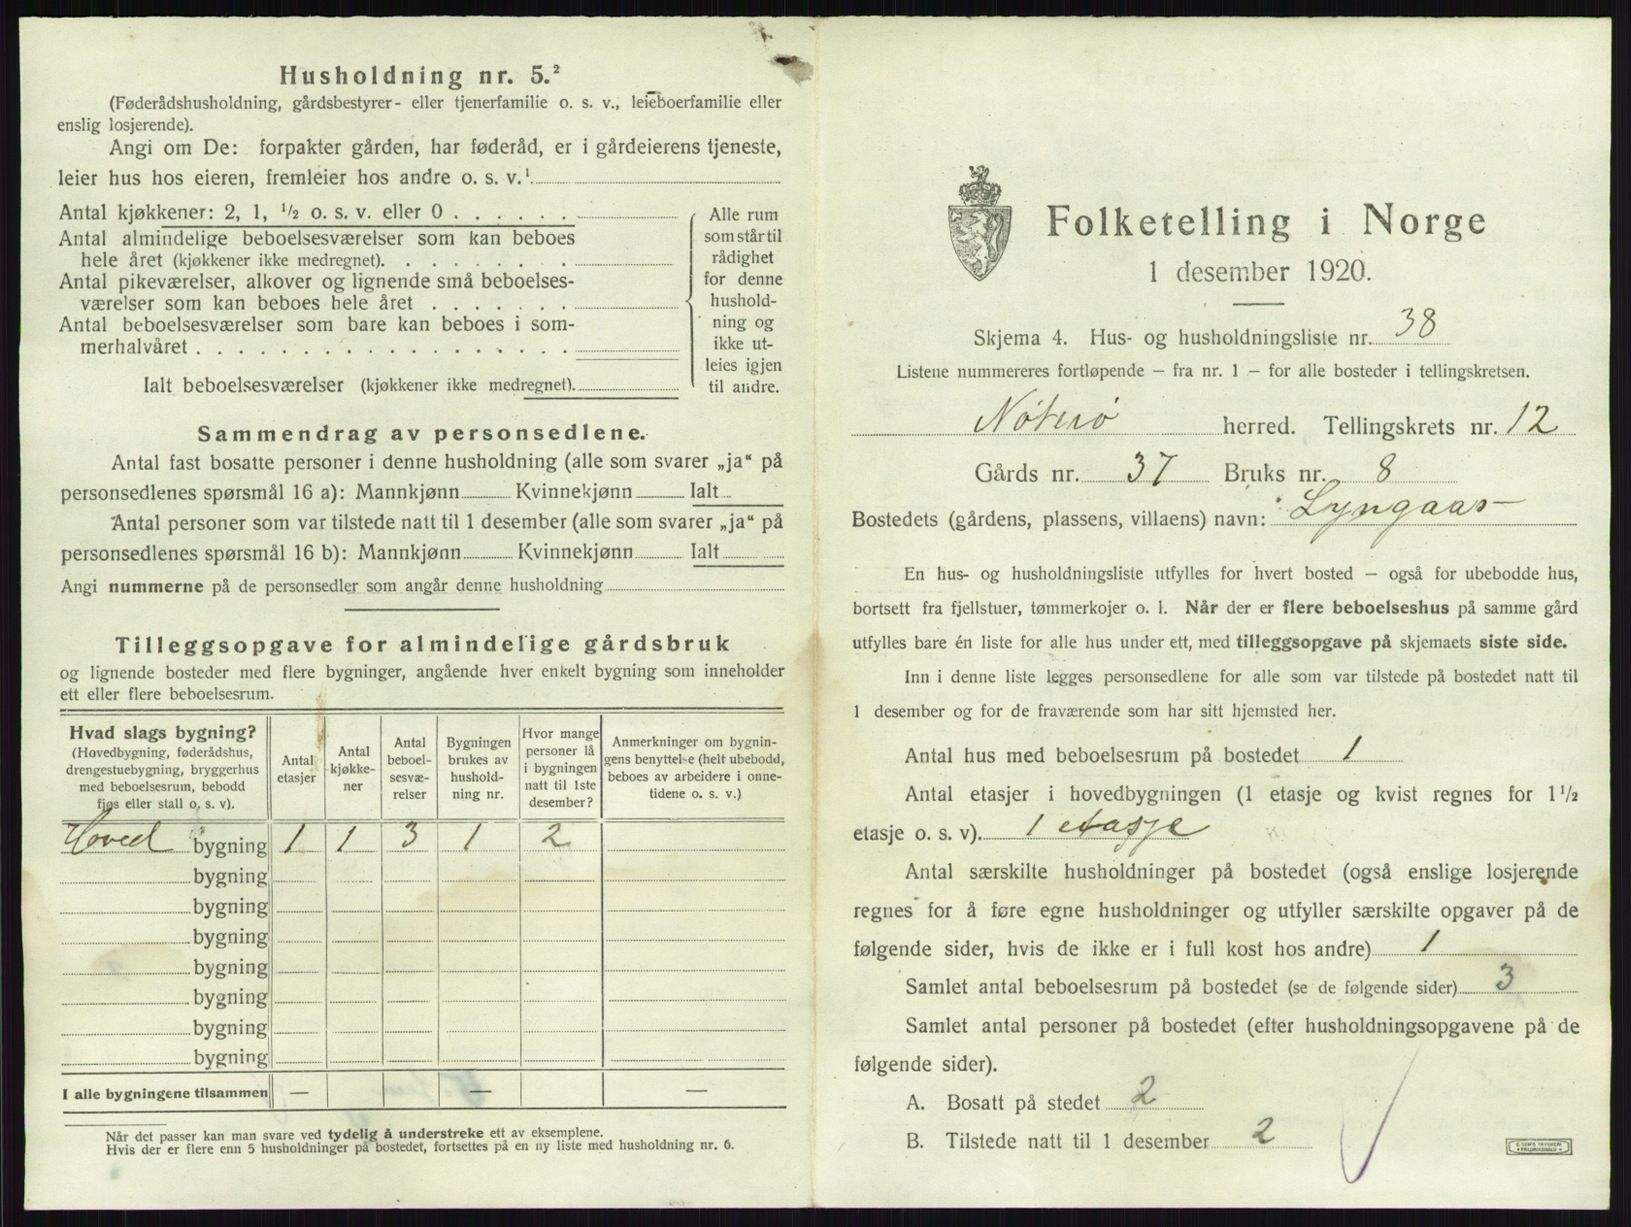 Husholdning nr. 5.²
(Føderådshusholdning, gårdsbestyrer- eller tjenerfamilie o. s. v., leieboerfamilie eller
enslig losjerende).
Angi om De: forpakter gården, har føderåd, er i gårdeierens tjeneste,
leier hus hos eieren, fremleier hos andre o. s. v.¹
Antal kjøkkener: 2, 1, ½ o. s. v. eller 0 . . . . . .
Antal almindelige beboelsesværelser som kan beboes
hele året (kjøkkener ikke medregnet). . . . . . . .
Antal pikeværelser, alkover og lignende små beboelses-
værelser som kan beboes hele året . . . . . . .
Antal beboelsesværelser som bare kan beboes i som-
merhalvåret . . . . . . . . . . . . . . . . . .
Ialt beboelsesværelser (kjøkkener ikke medregnet).
Alle rum
som står til
rådighet
for denne
hushold-
ning og
ikke ut-
leies igjen
til andre.
Sammendrag av personsedlene.
Antal fast bosatte personer i denne husholdning (alle som svarer „ja“ på
personsedlenes spørsmål 16 a): Mannkjønn Kvinnekjønn Ialt
Antal personer som var tilstede natt til 1 desember (alle som svarer „ja“ på
personsedlenes spørsmål 16 b): Mannkjønn Kvinnekjønn Ialt
Angi nummerne på de personsedler som angår denne husholdning
Tilleggsopgave for almindelige gårdsbruk
og lignende bosteder med flere bygninger, angående hver enkelt bygning som inneholder
ett eller flere beboelsesrum.
Hvad slags bygning?
(Hovedbygning, føderådshus,
drengestuebygning, bryggerhus
med beboelsesrum, bebodd
fjøs eller stall o. s. v).
Antal
etasjer
Antal
kjøkke-
ner
Antal
beboel-
sesvæ-
relser
Bygningen
brukes av
hushold-
ning nr.
Hvor mange
personer lå
i bygningen
natt til 1ste
desember?
Anmerkninger om bygnin-
gens benyttelse (helt ubebodd,
beboes av arbeidere i onne-
tidene o. s. v.)
Hoved bygning 1 1 3 1 2
bygning
bygning
bygning
bygning
bygning
bygning
bygning
I alle bygningene tilsammen — — —
Når det passer kan man svare ved tydelig å understreke ett av eksemplene.
Hvis der er flere enn 5 husholdninger på bostedet, fortsettes på en ny liste med husholdning nr. 6.
Folketelling i Norge
1 desember 1920.
Skjema 4. Hus- og husholdningsliste nr. 38
Listene nummereres fortløpende – fra nr. 1 – for alle bosteder i tellingskretsen.
Nøterø herred. Tellingskrets nr. 12
Gårds nr. 37 Bruks nr. 8
Bostedets (gårdens, plassens, villaens) navn: Lyngaas
En hus- og husholdningsliste utfylles for hvert bosted – også for ubebodde hus,
bortsett fra fjellstuer, tømmerkojer o. l. Når der er flere beboelseshus på samme gård
utfylles bare én liste for alle hus under ett, med tilleggsopgave på skjemaets siste side.
Inn i denne liste legges personsedlene for alle som var tilstede på bostedet natt til
1 desember og for de fraværende som har sitt hjemsted her.
Antal hus med beboelsesrum på bostedet 1
Antal etasjer i hovedbygningen (1 etasje og kvist regnes for 1½
etasje o. s. v). 1 etasje
Antal særskilte husholdninger på bostedet (også enslige losjerende
regnes for å føre egne husholdninger og utfyller særskilte opgaver på de
følgende sider, hvis de ikke er i full kost hos andre) 1
Samlet antal beboelsesrum på bostedet (se de følgende sider) 3
Samlet antal personer på bostedet (efter husholdningsopgavene på de
følgende sider).
A. Bosatt på stedet 2
B. Tilstede natt til 1 desember 2